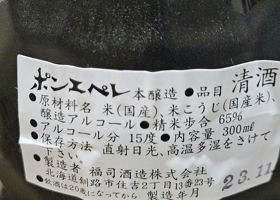 ポンエペレ 本醸造 ●品目 清酒
●原材料名 米(国産)、米こうじ(国産米)、
醸造アルコール ●精米歩合 65%
●アルコール分 15度 ●内容量 300㎖
●保存方法 直射日光、高温多湿をさけて
下さい。
●製造者 福司酒造株式会社
北海道釧路市住吉2丁目13番23号
●飲酒は20歳になってから 製造年月
23.11